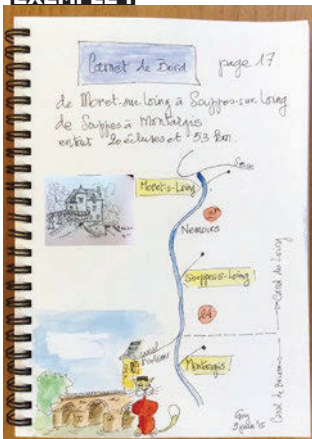 EXEMPLE 1
Carnet de Bord page 17
de Moret-sur-Loing à Souppes-sur-Loing
de Souppes à Montargis
en tout 20 écluses et 53 km.
Seine
Moret-s-Loing
Nemours
Souppes-s-Loing
24
Canal du Loing
canal
Montargis
Canal de Briare
Guy